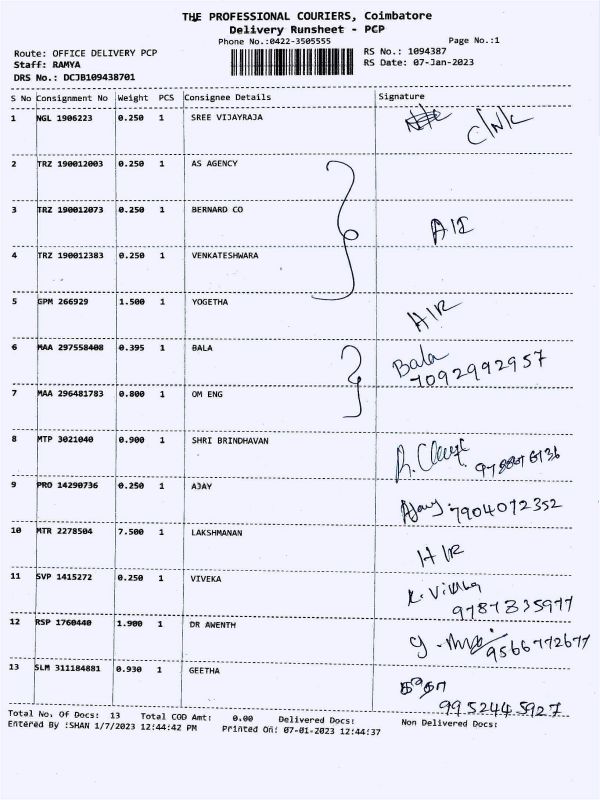 THE PROFESSIONAL COURIERS, Coimbatore
Delivery Runsheet - PCP
Phone No.:0422-3505555 Page No.:1
Route: OFFICE DELIVERY PCP RS No.: 1094387
Staff: RAMYA RS Date: 07-Jan-2023
DRS No.: DCJB109438701
S No Consignment No Weight PCS Consignee Details Signature
1 NGL 1906223 0.250 1 SREE VIJAYRAJA C/N/C
2 TRZ 190012003 0.250 1 AS AGENCY
3 TRZ 190012073 0.250 1 BERNARD CO
4 TRZ 190012383 0.250 1 VENKATESHWARA
5 GPM 266929 1.500 1 YOGETHA H/R
6 MAA 297558408 0.395 1 BALA Bala
7092992957
7 MAA 296481783 0.800 1 OM ENG
8 MTP 3021040 0.900 1 SHRI BRINDHAVAN
9 PRO 14290736 0.250 1 AJAY Ajay 7904072352
10 MTR 2278504 7.500 1 LAKSHMANAN H/R
11 SVP 1415272 0.250 1 VIVEKA
12 RSP 1760440 1.900 1 DR AWENTH
9566772677
13 SLM 311184881 0.930 1 GEETHA கீதா
9952445927
Total No. Of Docs: 13 Total COD Amt: 0.00 Delivered Docs: Non Delivered Docs:
Entered By :SHAN 1/7/2023 12:44:42 PM Printed On: 07-01-2023 12:44:37